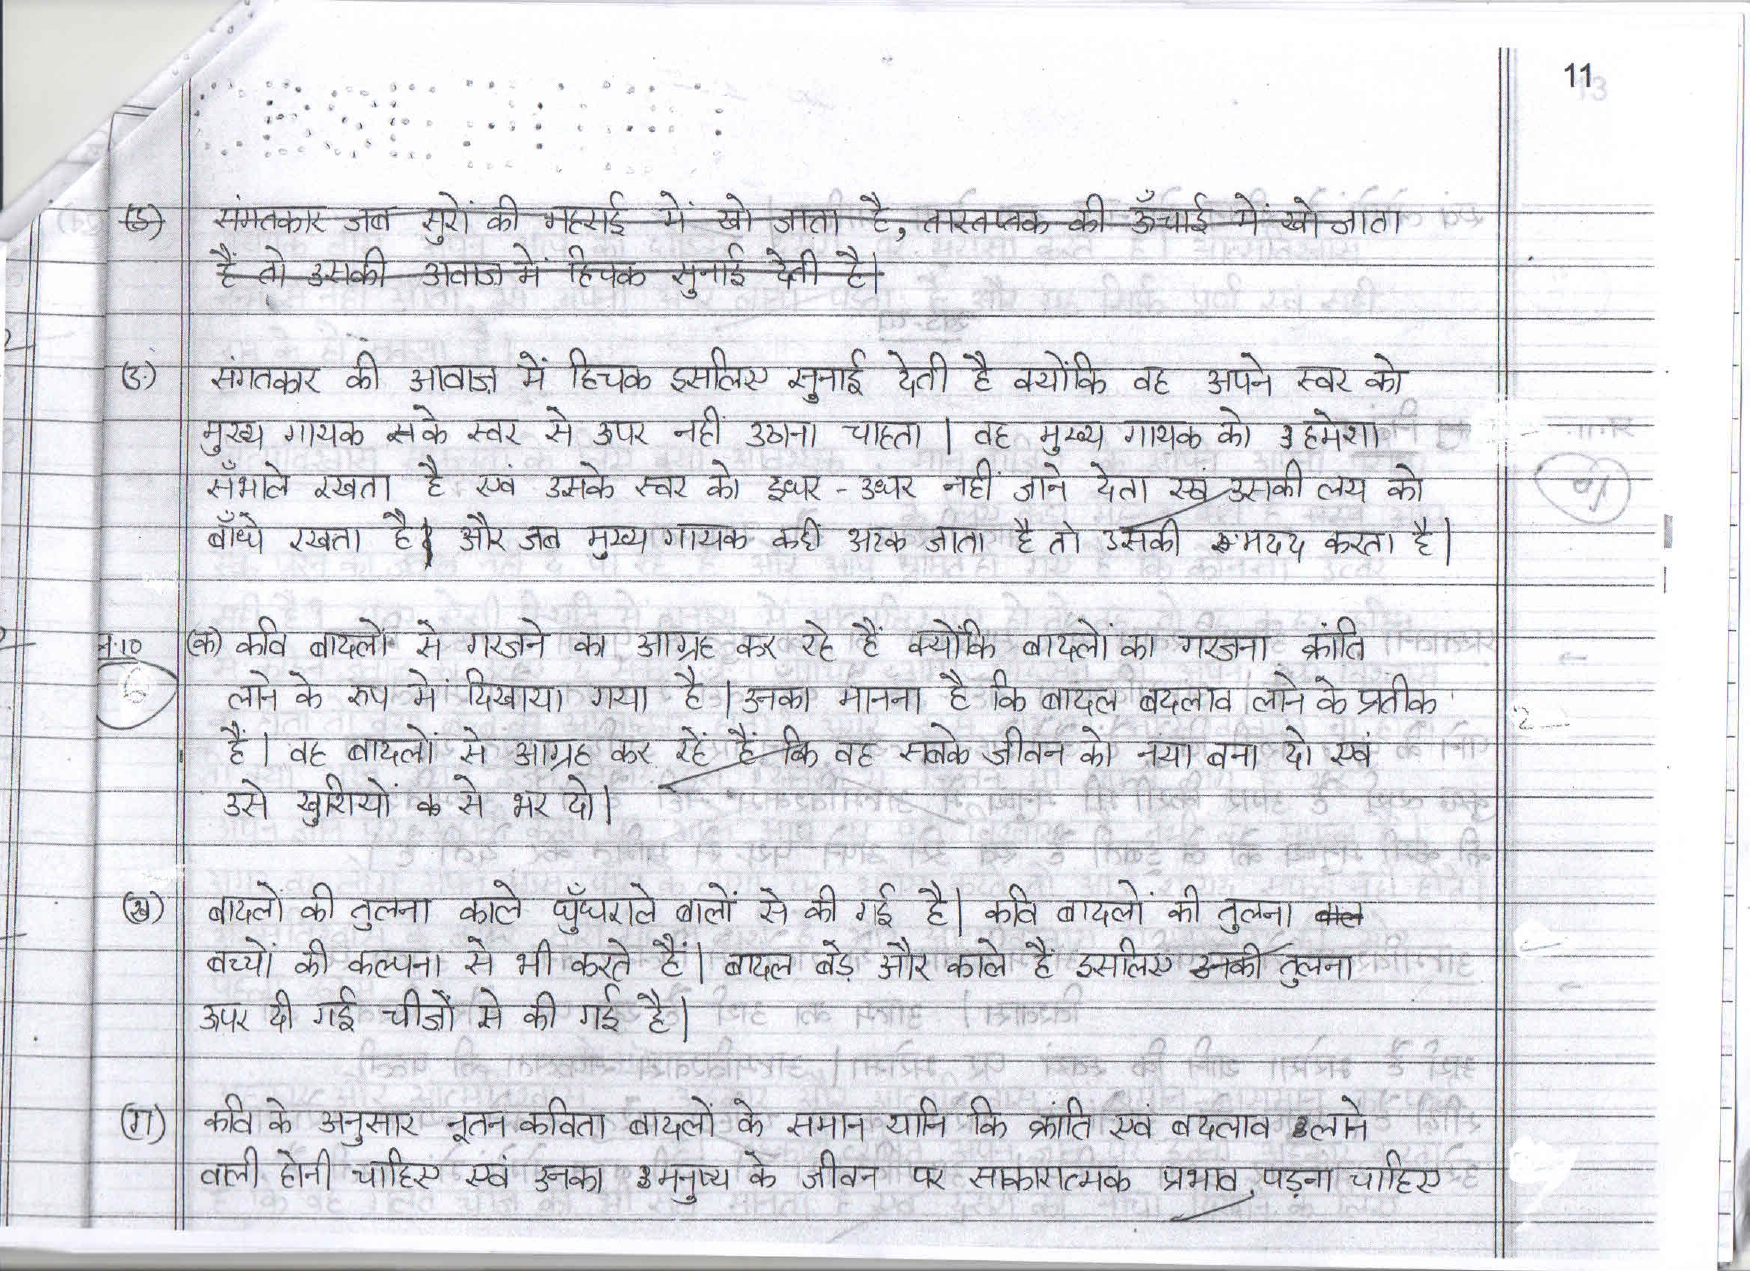 11
(ङ) संगतकार जब सुरों की गहराई में खो जाता है, तारसप्तक की ऊँचाई में खो जाता
है तो उसकी अवाज़ में हिचक सुनाई देती है।
(ङ) संगतकार की आवाज़ में हिचक इसलिए सुनाई देती है क्योंकि वह अपने स्वर को
मुख्य गायक के स्वर से ऊपर नहीं उठाना चाहता। वह मुख्य गायक को हमेशा
सँभाले रखता है एवं उसके स्वर को इधर-उधर नहीं जाने देता एवं उसकी लय को
बाँधे रखता है। और जब मुख्य गायक कही अटक जाता है तो उसकी मदद करता है।
न.10 (क) कवि बादलों से गरजने का आग्रह कर रहे हैं क्योंकि बादलों का गरजना क्रांति
6 लाने के रुप में दिखाया गया है। उनका मानना है कि बादल बदलाव लाने के प्रतीक 2
हैं। वह बादलों से आग्रह कर रहें हैं कि वह सबके जीवन को नया बना दो एवं
उसे खुशियों से भर दो।
(ख) बादलों की तुलना काले घुँघराले बालों से की गई है। कवि बादलों की तुलना
बच्चों की कल्पना से भी करते हैं। बादल बड़े और काले हैं इसलिए उनकी तुलना
ऊपर दी गई चीजों से की गई है।
(ग) कवि के अनुसार नूतन कविता बादलों के समान यानि कि क्रांति एवं बदलाव लाने
वाली होनी चाहिए एवं उनका मनुष्य के जीवन पर साकारात्मक प्रभाव पड़ना चाहिए